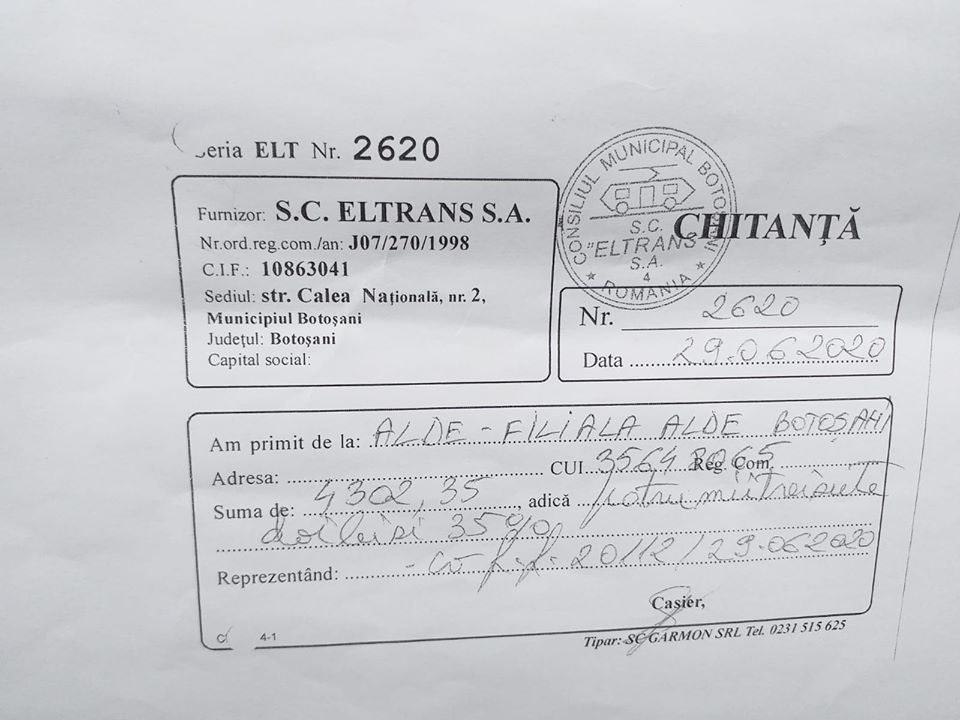 Seria ELT Nr. 2620
CONSILIUL MUNICIPAL BOTOȘANI
S.C.
"ELTRANS"
S.A.
4
* ROMANIA *
CHITANȚĂ
Furnizor: S.C. ELTRANS S.A.
Nr.ord.reg.com./an: J07/270/1998
C.I.F.: 10863041
Sediul: str. Calea Națională, nr. 2,
Municipiul Botoșani
Județul: Botoșani
Capital social:
Nr. 2620
Data 29.06.2020
Am primit de la: ALDE - FILIALA ALDE BOTOȘANI
Adresa: CUI Reg. Com.
Suma de: 4302,35, adică patrumiitreisute
doi lei si 35%
Reprezentând: - cv f.f. 20112/29.062020
Casier,
4-1
Tipar: SC GARMON SRL Tel. 0231 515 625